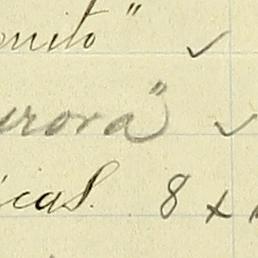 onito" ✓
urora" ✓
icas. 8 x